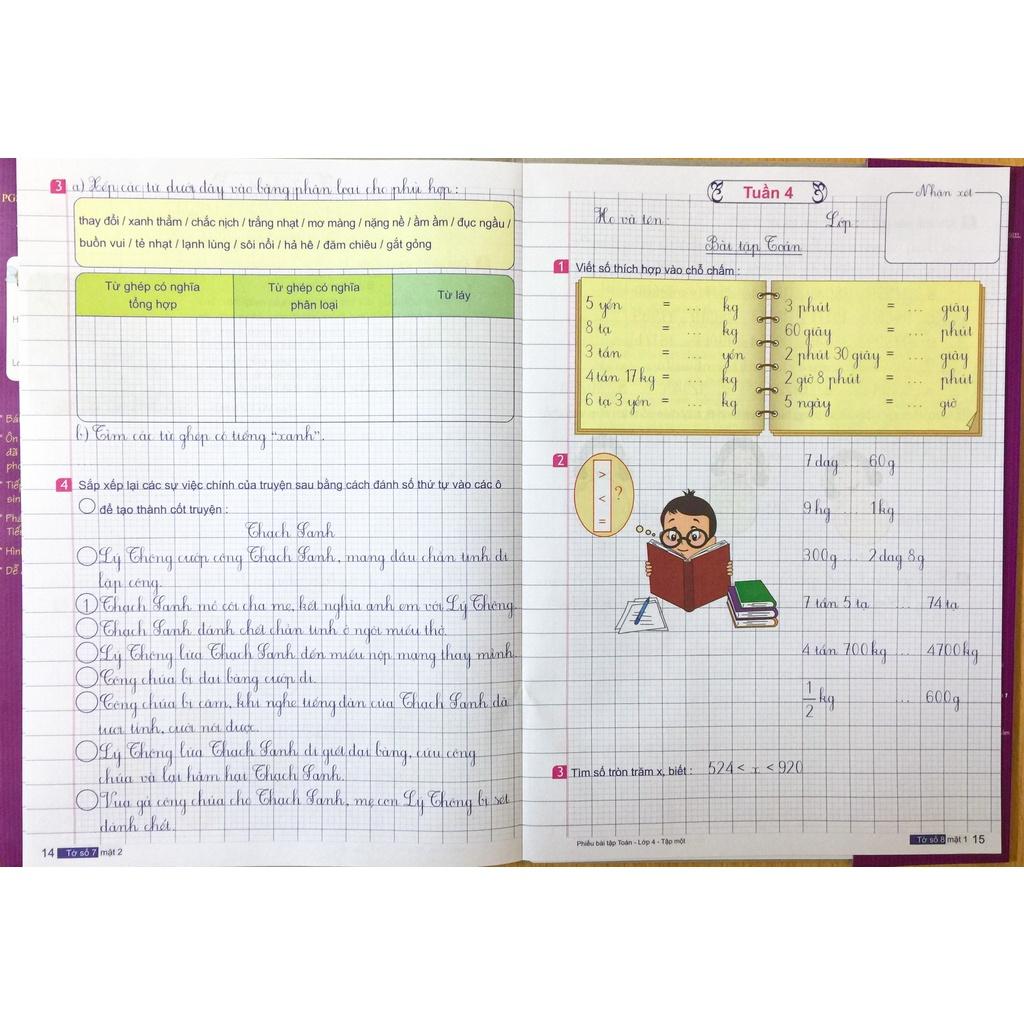 3 a) Xếp các từ dưới đây vào bảng phân loại cho phù hợp :
thay đổi / xanh thẳm / chắc nịch / trắng nhạt / mơ màng / nặng nề / ầm ầm / đục ngầu /
buồn vui / tẻ nhạt / lạnh lùng / sôi nổi / hả hê / đăm chiêu / gắt gỏng
Từ ghép có nghĩa tổng hợp
Từ ghép có nghĩa phân loại
Từ láy
b) Tìm các từ ghép có tiếng “xanh”.
4 Sắp xếp lại các sự việc chính của truyện sau bằng cách đánh số thứ tự vào các ô
để tạo thành cốt truyện :
Thạch Sanh
Lý Thông cướp công Thạch Sanh, mang đầu chằn tinh đi
lập công.
1 Thạch Sanh mồ côi cha mẹ, kết nghĩa anh em với Lý Thông.
Thạch Sanh đánh chết chằn tinh ở ngôi miếu thờ.
Lý Thông lừa Thạch Sanh đến miếu nộp mạng thay mình.
Công chúa bị đại bàng cướp đi.
Công chúa bị câm, khi nghe tiếng đàn của Thạch Sanh đã
tươi tỉnh, cười nói được.
Lý Thông lừa Thạch Sanh đi giết đại bàng, cứu công
chúa và lại hãm hại Thạch Sanh.
Vua gả công chúa cho Thạch Sanh, mẹ con Lý Thông bị sét
đánh chết.
14 Tờ số 7 mặt 2
Tuần 4
Nhận xét
Họ và tên: Lớp:
Bài tập Toán
1 Viết số thích hợp vào chỗ chấm :
5 yến = ... kg
8 tạ = ... kg
3 tấn = ... yến
4 tấn 17 kg = ... kg
6 tạ 3 yến = ... kg
3 phút = ... giây
60 giây = ... phút
2 phút 30 giây = ... giây
2 giờ 8 phút = ... phút
5 ngày = ... giờ
2
>
<
=
?
7 dag ... 60g
9hg ... 1kg
300g ... 2 dag 8g
7 tấn 5 tạ ... 74 tạ
4 tấn 700kg ... 4700kg
1/2 kg ... 600g
3 Tìm số tròn trăm x, biết : 524 < x < 920
Phiếu bài tập Toán - Lớp 4 - Tập một
Tờ số 8 mặt 1 15